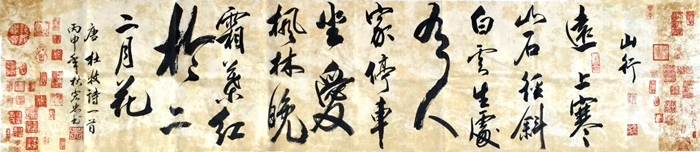 山行
遠上寒
山石徑斜
白雲生處
有人
家停車
坐愛
楓林晚
霜葉紅
於二
二月花
唐杜牧诗一首
丙申年秋